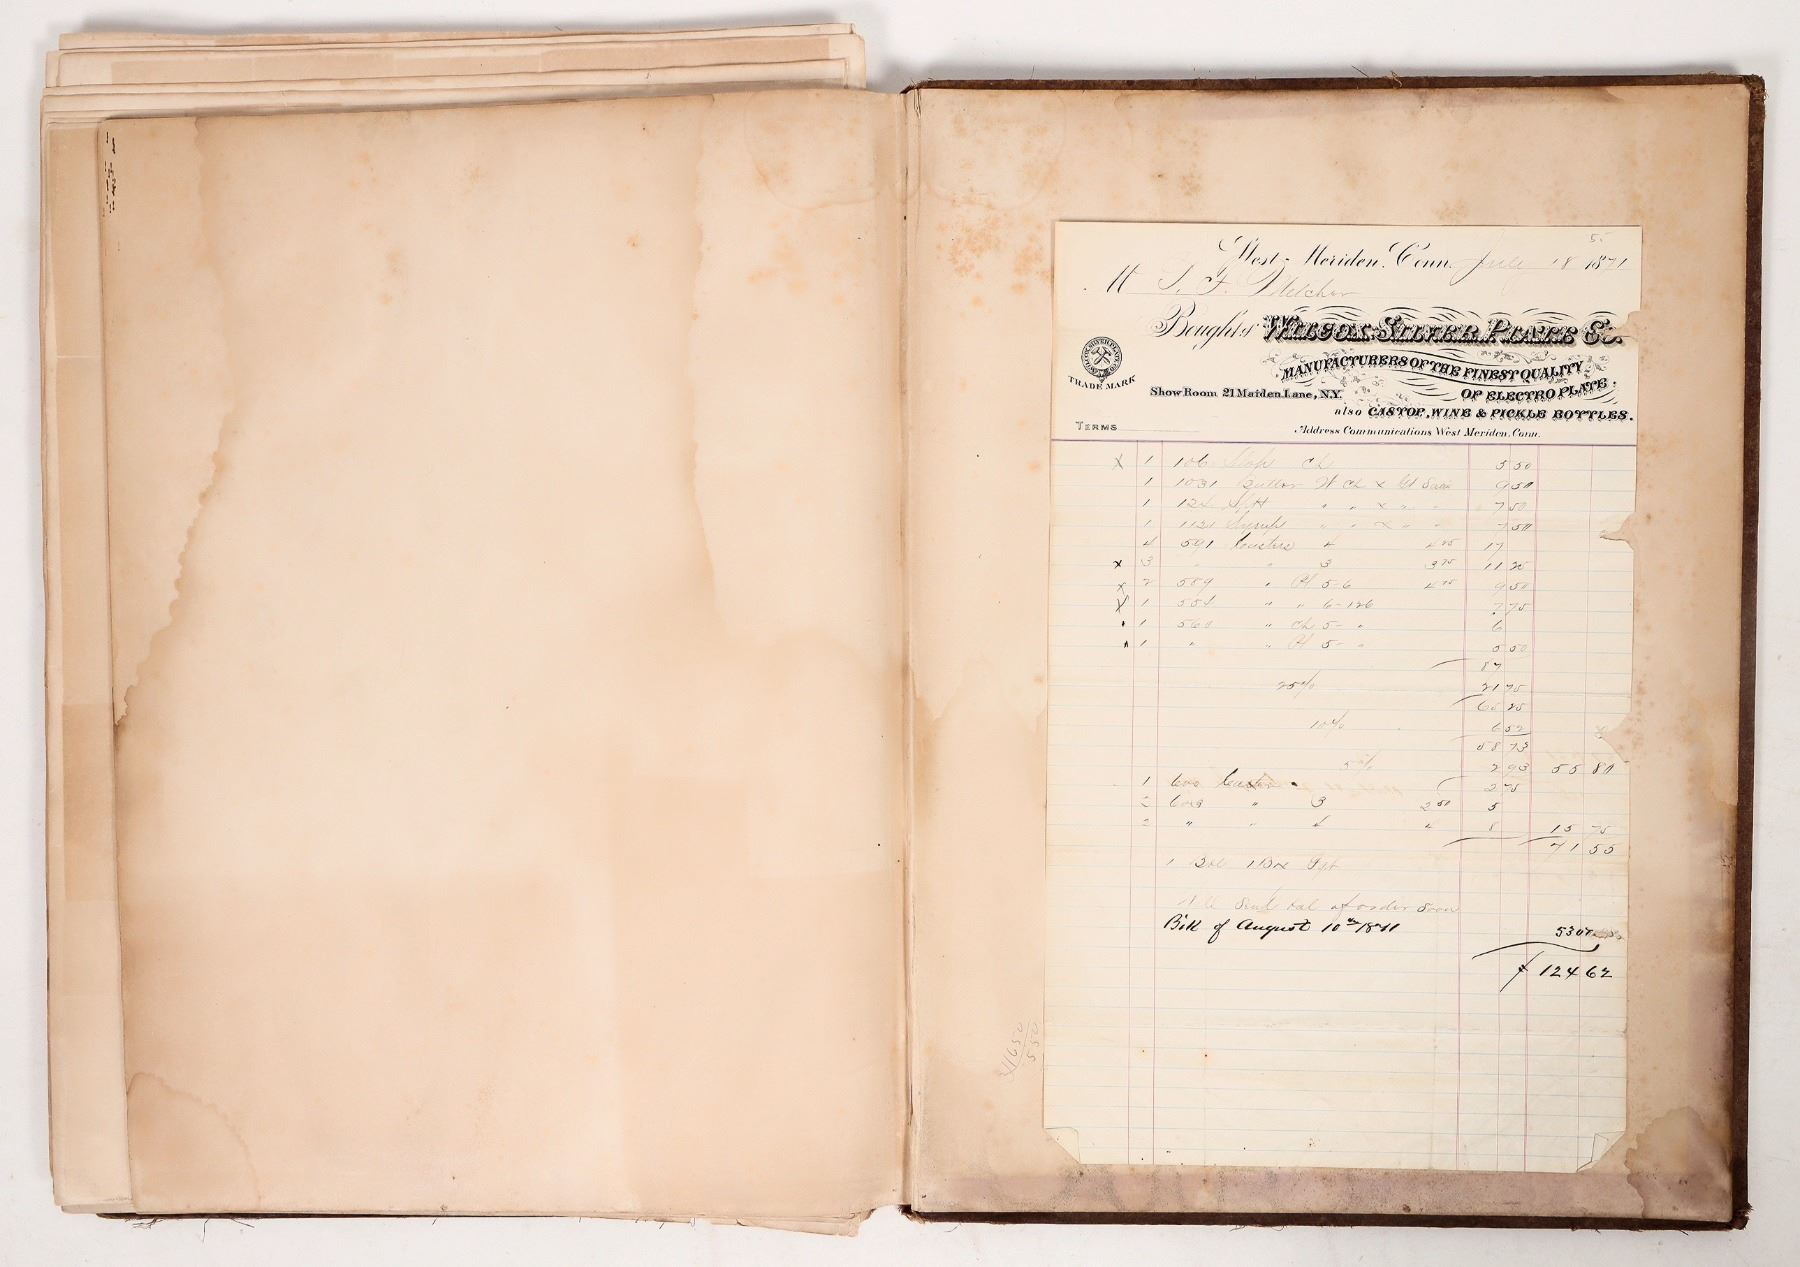 55
West-Meriden, Conn. July 18 1871
M T. F. Melcher
Bought of WILCOX SILVER PLATE Co.
MANUFACTURERS OF THE FINEST QUALITY
OF ELECTRO PLATE:
WILCOX SILVER PLATE CO
TRADE MARK
Show Room 21 Maiden Lane, N.Y.
also CASTOR, WINE & PICKLE BOTTLES.
TERMS
Address Communications West Meriden, Conn.
X 1 106 Ch 5 50
1 1031 Butter W Ch X 9 50
1 124 " " X " " 7 50
1 1121 Syrup " " X " " 7 50
4 591 Casters 4 4 25 17
X 3 " " 3 3 75 11 25
X 2 589 " Pl 5-6 4 75 9 50
X 1 554 " " 6-126 7 75
1 560 " Ch 5- " 6
1 " " Pl 5- " 5 50
87
25% 21 75
65 25
10% 6 52
58 73
5% 2 93 55 80
1 600 Caster 2 75
2 603 " 3 2 50 5
2 " " 4 4 8 15 75
71 55
1 1 Bx
Will Send bal of order Soon
Bill of August 10th 1871 5307
$ 124 62
11650
550